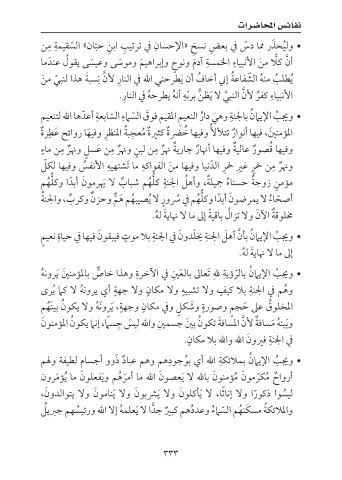 نفائس المحاضرات
• وليُحذَر مما دسّ في بعضِ نسخِ «الإحسانِ في ترتيبِ ابنِ حبّان» السَّقيمةِ مِن
أنَّ كلًّا منَ الأنبياءِ الخمسةِ آدمَ ونوحٍ وإبراهيمَ وموسَى وعيسَى يقولُ عندَما
يُطلبُ منهُ الشَّفاعةُ إني أخافُ أن يَطرحَني الله في النارِ لأنَّ نِسبةَ هذا لنبيٍّ منَ
الأنبياءِ كفرٌ لأنَّ النبيَّ لا يَظنُّ بربّهِ أنهُ يطرحهُ في النارِ.
• ويجبُ الإيمانُ بالجنةِ وهيَ دارُ النعيمِ المقيمِ فوقَ السّماءِ السّابعةِ أعدّها الله لتنعيمِ
المؤمنينَ، فيها أنوارٌ تتلألأُ وفيها خُضرةٌ كثيرةٌ مُعجِبةُ المنظرِ وفيهَا روائحُ عَطِرةٌ
وفيها قُصورٌ عاليةٌ وفيها أنهارٌ جاريةٌ نهرٌ مِن لبنٍ ونهرٌ مِن عَسلٍ ونهرٌ مِن ماءٍ
ونهرٌ مِن خمرٍ غيرِ خمرِ الدّنيا وفيها منَ الفواكهِ ما تَشتهيهِ الأنفسُ وفيها لكلّ
مؤمنٍ زوجةٌ حسناءُ جميلةٌ، وأهلُ الجنةِ كلُّهُم شبابٌ لا يَهرمونَ أبدًا وكلُّهُم
أصحّاءُ لا يمرضونَ أبدًا وكلُّهُم في سُرورٍ لا يُصيبُهُم همٌّ وحزنٌ وكربٌ، والجنةُ
مخلوقةٌ الآنَ ولا تزالُ باقيةً إلى ما لا نهايةَ لهُ.
• ويجبُ الإيمانُ بأنَّ أهلَ الجنةِ يخلّدونَ في الجنةِ بلا موتٍ فيبقونَ فيها في حياةِ نعيمٍ
إلى ما لا نهايةَ لهُ.
• ويجبُ الإيمانُ بالرّؤيةِ للهِ تَعالى بالعَينِ في الآخرةِ وهذا خاصٌّ بالمؤمنينَ يَرونَهُ
وهُم في الجنةِ بلا كيفٍ ولا تشبيهٍ ولا مكانٍ ولا جهةٍ أي يرونهُ لا كما يُرى
المخلوقُ على حَجمٍ وصورةٍ وشَكلٍ وفي مكانٍ وجهةٍ، يَرونَهُ ولا يكونُ بينَهُم
وبَينهُ مَسافةٌ لأنَّ المَسافةَ تكونُ بينَ جسمينِ والله ليسَ جِسمًا، إنما يكونُ المؤمنونَ
في الجنةِ فيرونَ الله والله بلا مكانٍ.
• ويجبُ الإيمانُ بملائكةِ الله أي بوُجودِهم وهم عبادٌ ذَوو أجسامٍ لطيفة ولهم
أرواحٌ مُكرّمونَ مُؤمنونَ بالله لا يَعصونَ الله ما أمرَهُم ويَفعلونَ ما يُؤمَرون
ليسُوا ذكورًا ولا إناثًا، لا يَأكلونَ ولا يَشربونَ ولا يَنامونَ ولا يتوالدونَ،
والملائكةُ مسكنُهُم السّماءُ وعددُهم كبيرٌ جدًّا لا يَعلمهُ إلا الله ورئيسُهم جبريلُ
٣٣٣